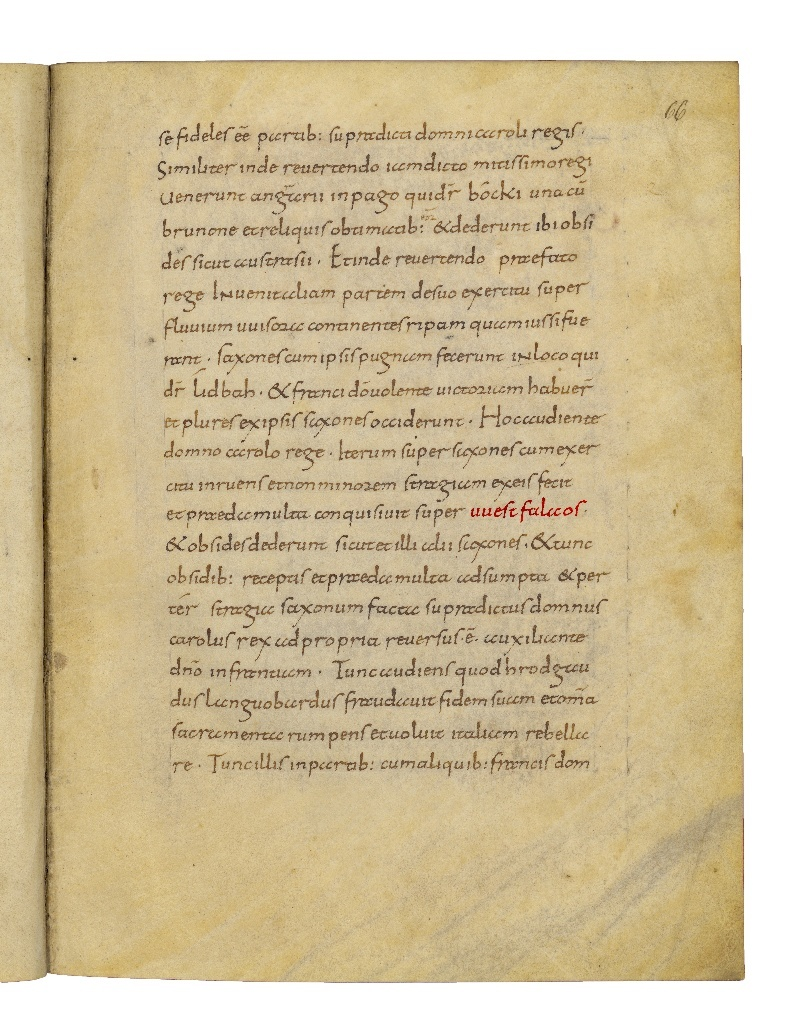 66
se fideles eē partib: supradicti domni caroli regis.
Similiter inde revertendo iamdicto mitissimo regi
Venerunt angrarii in pago quidr̄ bōcki una cū
brunone et reliquis obtimatib: eor̄ & dederunt ibi obsi
des sicut austrasii. Et inde revertendo praefato
rege Invenit aliam partem de suo exercitu super
fluvium uuisora continentes ripam quam iussi fue
rant. saxones cum ipsis pugnam fecerunt in loco qui
dr̄ lidbah. & franci dō volente victoriam habuer̄
et plures ex ipsis saxones occiderunt. Hoc audiente
domno carolo rege. Iterum super saxones cum exer
citu inruens et non minorem stragiam ex eis fecit
et praeda multa conquisivit super uuestfalaos.
& obsides dederunt sicut et illi alii saxones. & tunc
obsidib: receptis et praeda multa adsumpta & per
ter̄ stragia saxonum facta supradictus domnus
carolus rex ad propria reversus .ē. auxiliante
dn̄o in frantiam. Tunc audiens quod hrodgau
dus languobardus fraudavit fidem suam et om̄a
sacramenta rumpens et voluit italiam rebella
re. Tunc illis in partib: cum aliquib: francis dom